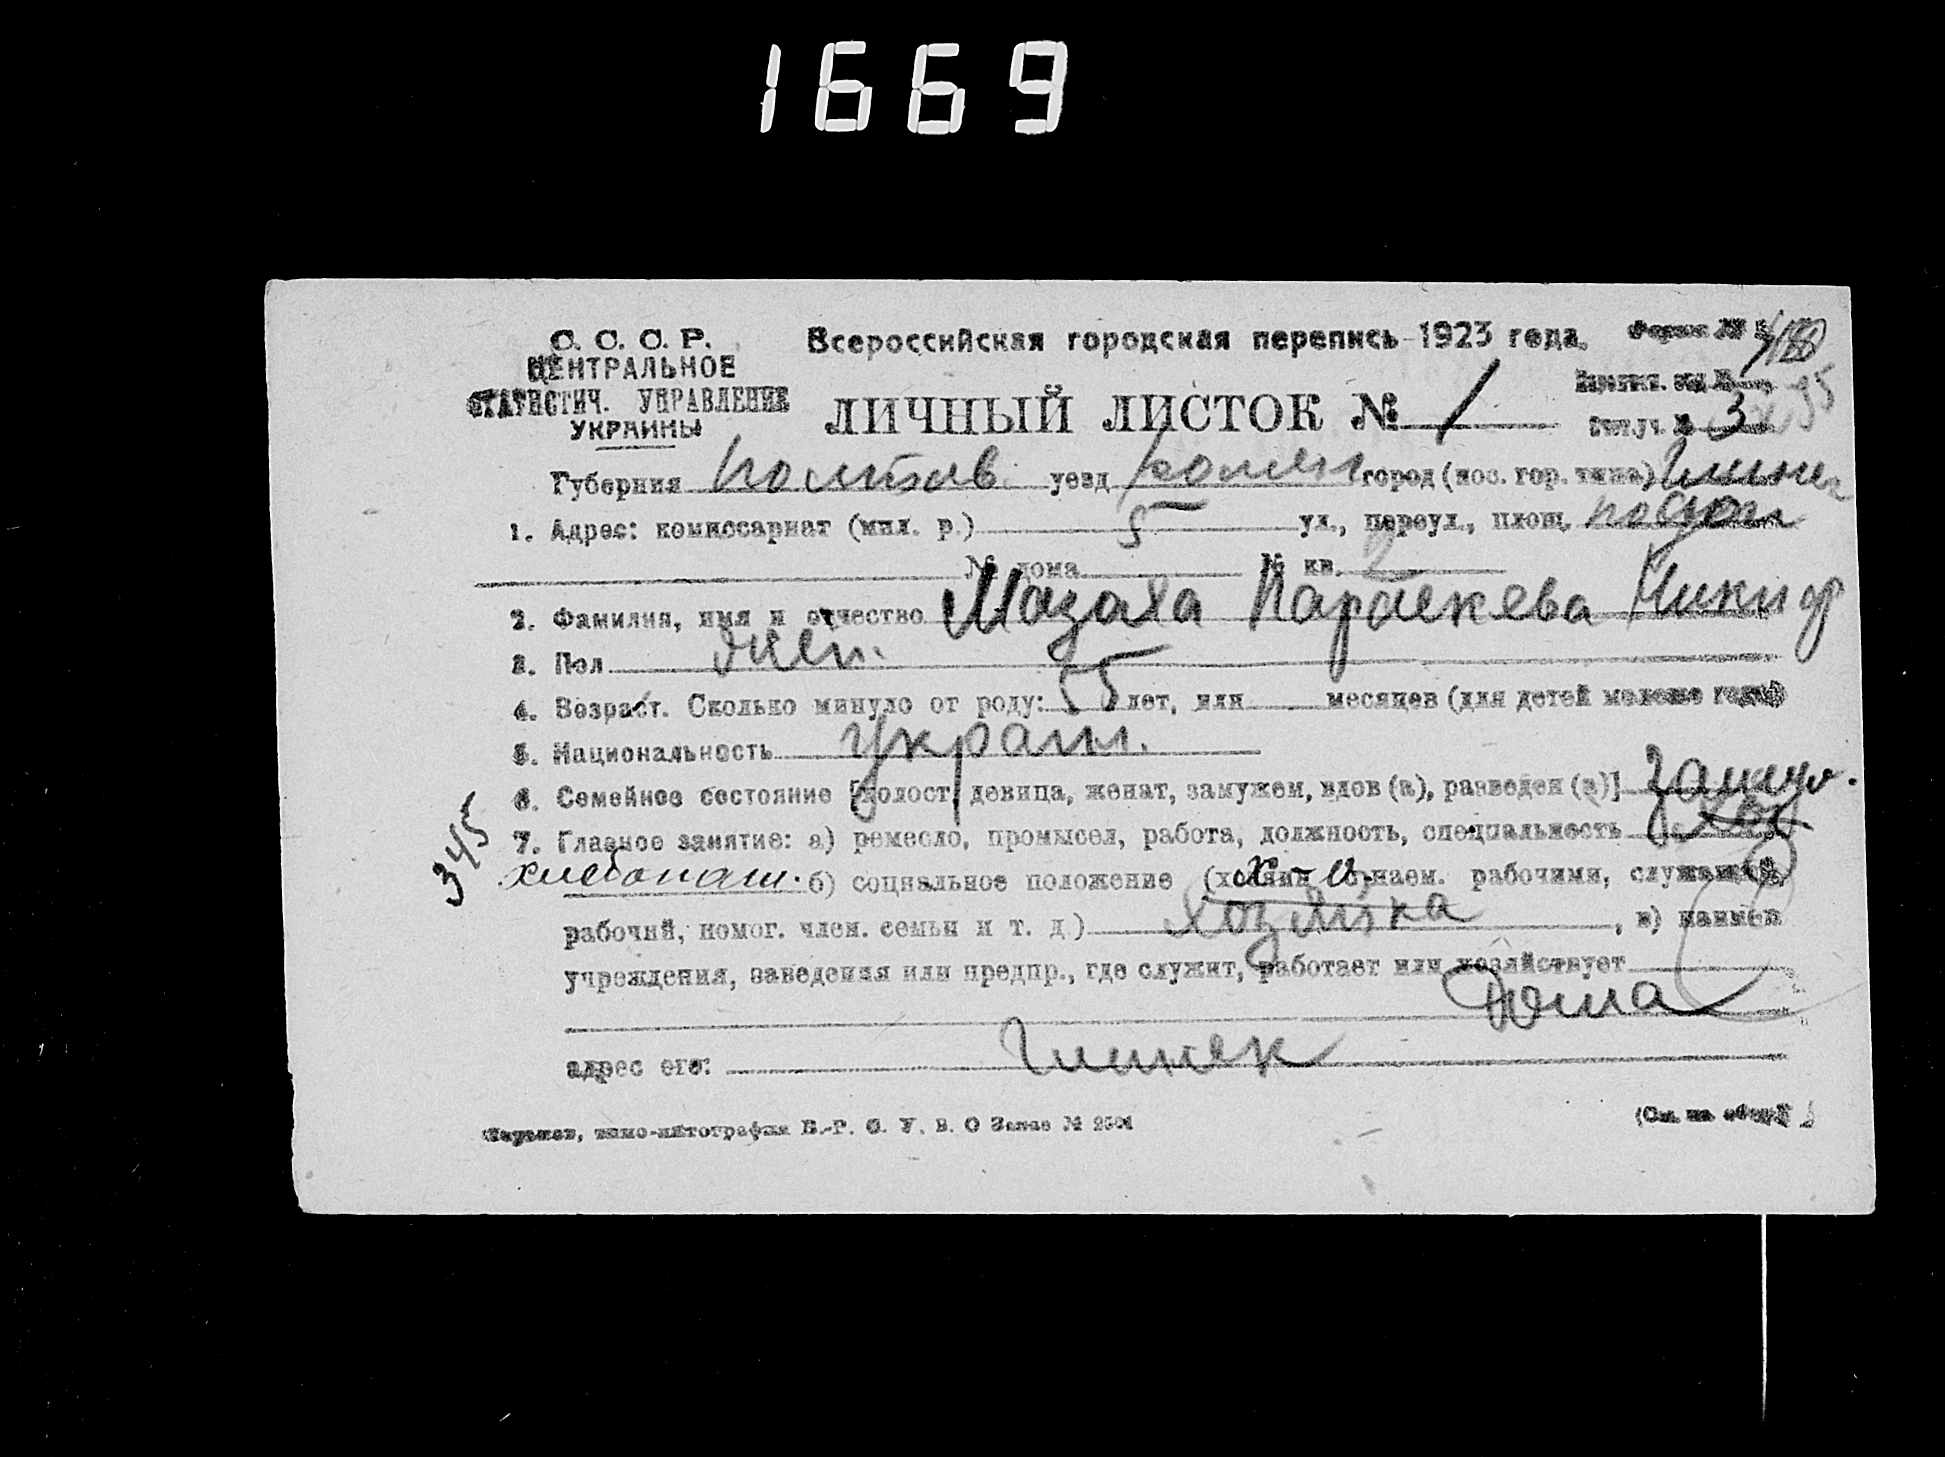 1669
С. С. С. Р.
ЦЕНТРАЛЬНОЕ
СТАТИСТИЧ. УПРАВЛЕНИЕ
УКРАИНЫ
Всероссийская городская перепись 1923 года.
Форма №
ЛИЧНЫЙ ЛИСТОК № 1
Стат. уч. № 3
Губерния Полтав. уезд город (пос. гор. типа) Глинск
1. Адрес: комиссариат (мил. р.) 5 ул., переул., площ.
№ дома № кв. 2
2. Фамилия, имя и отчество Мазаха Параскева Никиф
3. Пол жен.
4. Возраст. Сколько минуло от роду: 55 лет, или месяцев (для детей моложе года)
5. Национальность украин.
6. Семейное состояние [холост, девица, женат, замужем, вдов (а), разведен (а)] замуж.
7. Главное занятие: а) ремесло, промысел, работа, должность, специальность
345
хлебопаш. б) социальное положение (хозяин с наем. рабочими, служащий,
рабочий, помог. член. семьи и т. д.) хозяйка, в) наимен
учреждения, заведения или предпр., где служит, работает или хозяйствует
Дома
адрес его: Глинск
Харьков, типо-литография В.-Р. С. У. В. О Заказ № 2501
(См. на обор.)